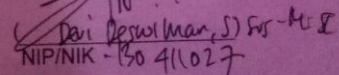 Devi Deswlman, S) Sos - M. I
NIP/NIK - 130 411027